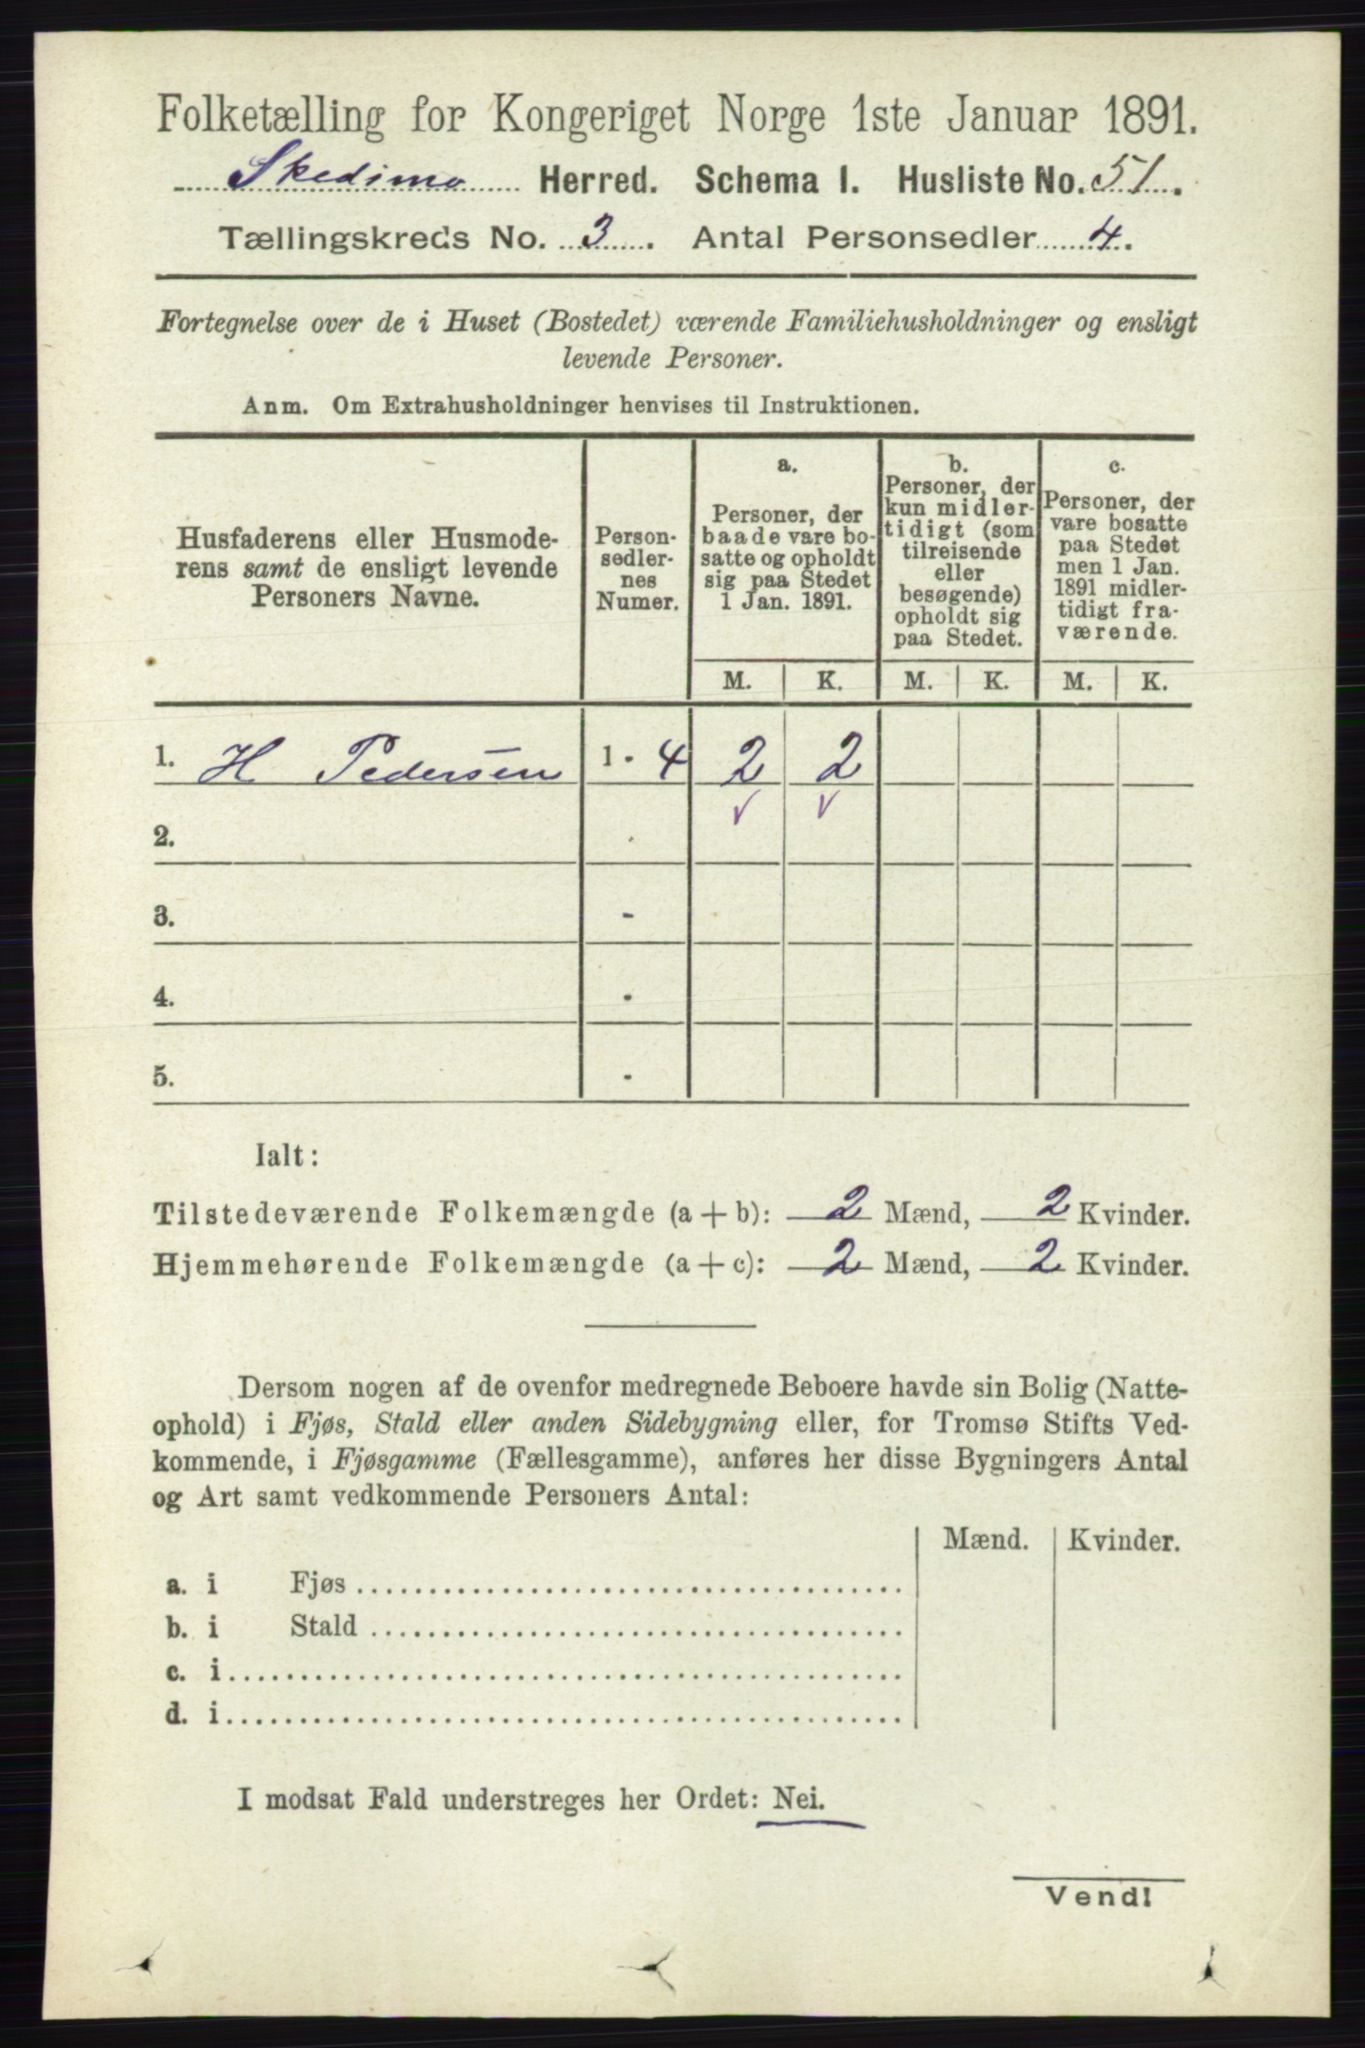 Folketælling for Kongeriget Norge 1ste Januar 1891.
Skedsmo Herred. Schema I. Husliste No. 51.
Tællingskreds No. 3. Antal Personsedler 4.
Fortegnelse over de i Huset (Bostedet) værende Familiehusholdninger og ensligt
levende Personer.
Anm. Om Extrahusholdninger henvises til Instruktionen.
Husfaderens eller Husmode-
rens samt de ensligt levende
Personers Navne.
Person-
sedler-
nes
Numer.
a.
Personer, der
baade vare bo-
satte og opholdt
sig paa Stedet
1 Jan. 1891.
b.
Personer, der
kun midler-
tidigt (som
tilreisende
eller
besøgende)
opholdt sig
paa Stedet.
c.
Personer, der
vare bosatte
paa Stedet
men 1 Jan.
1891 midler-
tidigt fra-
værende.
M. K. M. K. M. K.
1. H Pedersen 1 - 4 2 2
2. -
3. -
4. -
5. -
Ialt:
Tilstedeværende Folkemængde (a + b): 2 Mænd, 2 Kvinder.
Hjemmehørende Folkemængde (a + c): 2 Mænd, 2 Kvinder.
Dersom nogen af de ovenfor medregnede Beboere havde sin Bolig (Natte-
ophold) i Fjøs, Stald eller anden Sidebygning eller, for Tromsø Stifts Ved-
kommende, i Fjøsgamme (Fællesgamme), anføres her disse Bygningers Antal
og Art samt vedkommende Personers Antal:
Mænd. Kvinder.
a. i Fjøs
b. i Stald
c. i
d. i
I modsat Fald understreges her Ordet: Nei.
Vend!